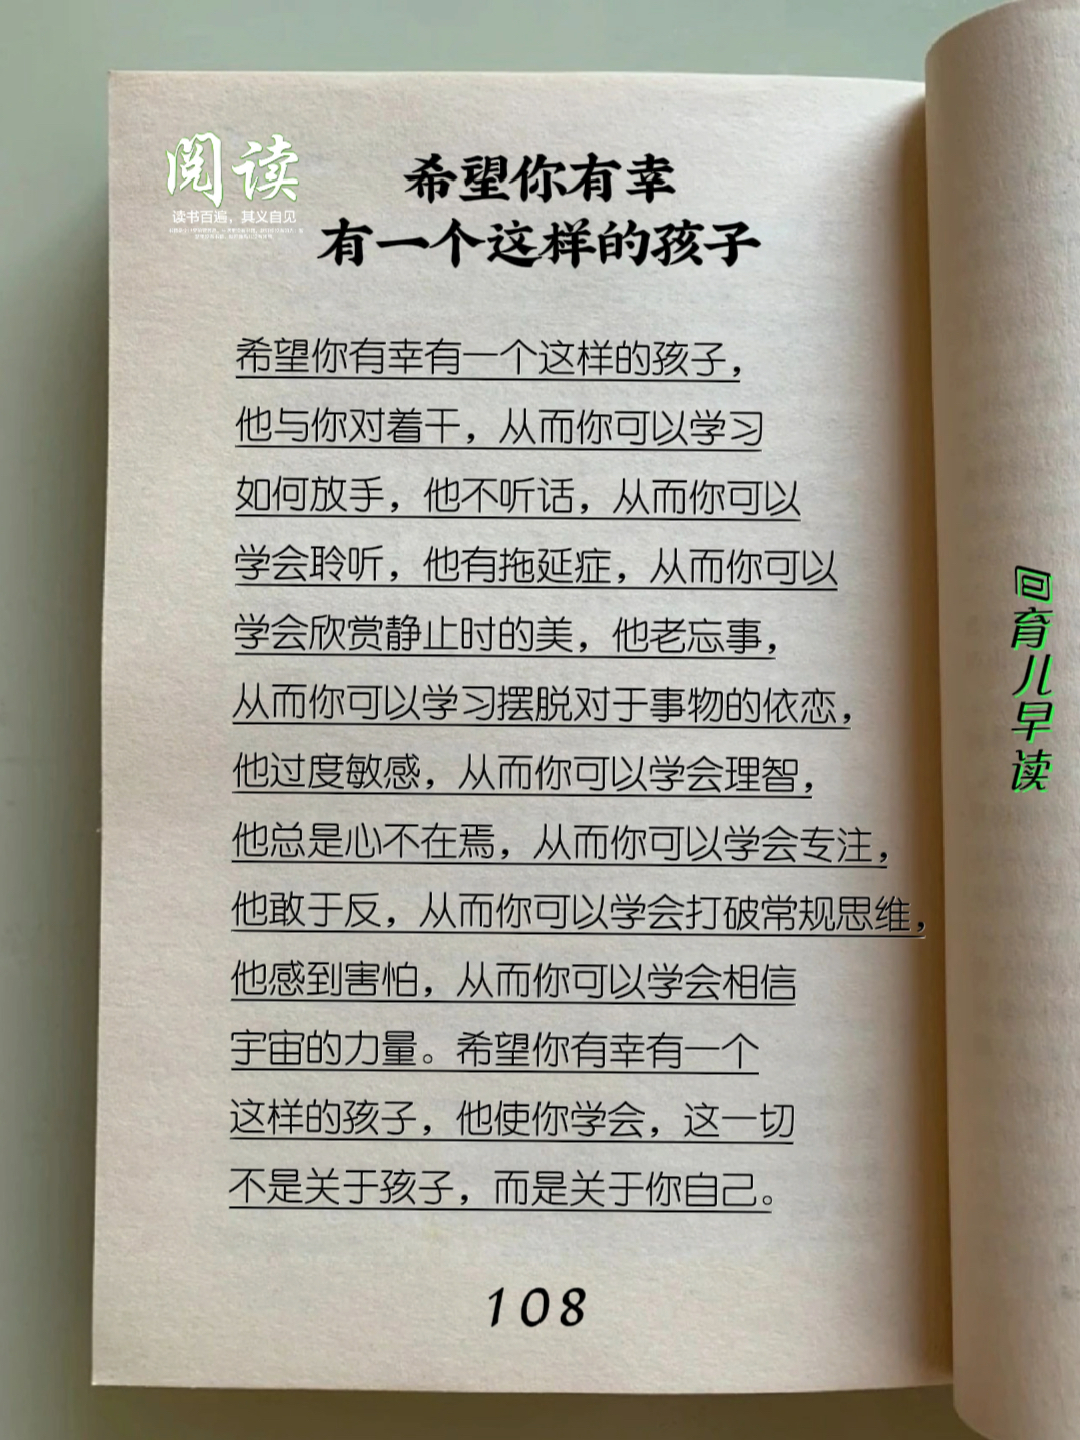 阅读
读书百遍，其义自见
希望你有幸
有一个这样的孩子
希望你有幸有一个这样的孩子，
他与你对着干，从而你可以学习
如何放手，他不听话，从而你可以
学会聆听，他有拖延症，从而你可以
学会欣赏静止时的美，他老忘事，
从而你可以学习摆脱对于事物的依恋，
他过度敏感，从而你可以学会理智，
他总是心不在焉，从而你可以学会专注，
他敢于反，从而你可以学会打破常规思维，
他感到害怕，从而你可以学会相信
宇宙的力量。希望你有幸有一个
这样的孩子，他使你学会，这一切
不是关于孩子，而是关于你自己。
108
回育儿早读